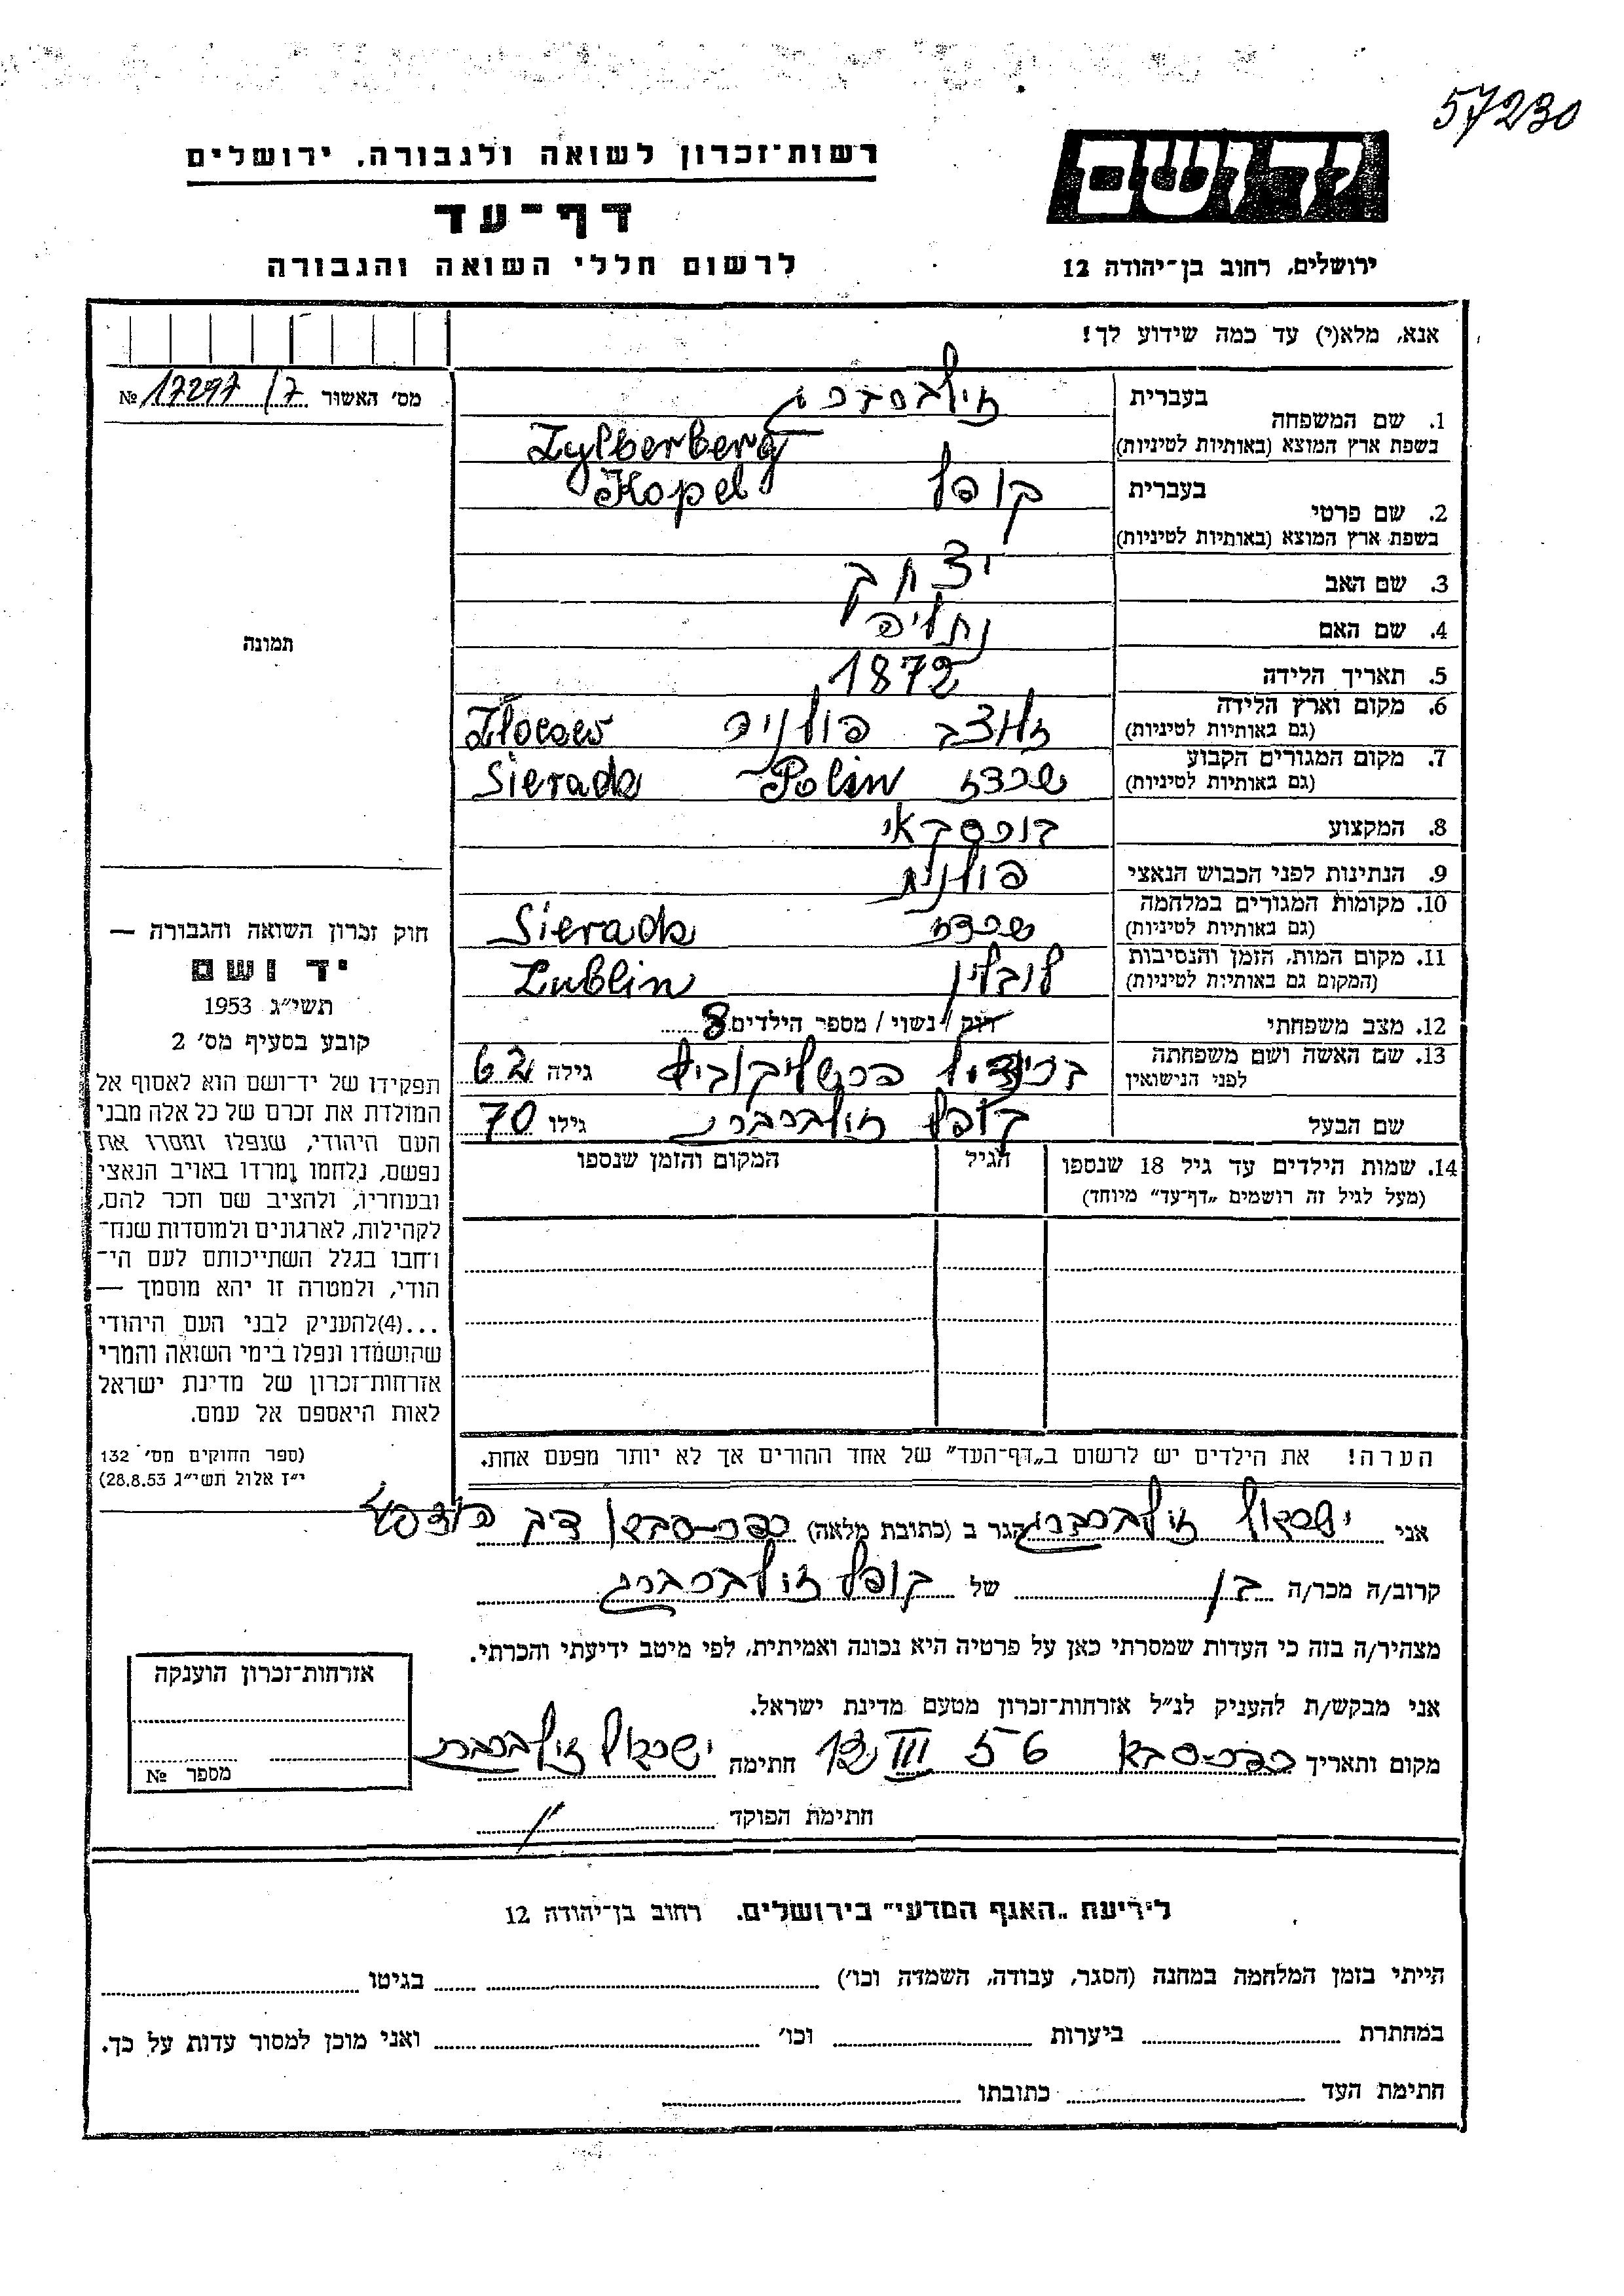 57230
יד ושם
רשות־זכרון לשואה ולגבורה, ירושלים
דף־עד
לרשום חללי השואה והגבורה
ירושלים, רחוב בן־יהודה 12
אנא, מלא(י) עד כמה שידוע לך!
מס' האשור 17297/7 №
תמונה
בעברית
1. שם המשפחה
בשפת ארץ המוצא (באותיות לטיניות)
Zylberberg
בעברית קופל
2. שם פרטי Kopel
בשפת ארץ המוצא (באותיות לטיניות)
3. שם האב יצחק
4. שם האם
5. תאריך הלידה 1872
6. מקום וארץ הלידה
(גם באותיות לטיניות)
זלוצב
7. מקום המגורים הקבוע
(גם באותיות לטיניות)
שרדז Polin Sieradz
8. המקצוע בורסקאי
9. הנתינות לפני הכבוש הנאצי פולנית
10. מקומות המגורים במלחמה
(גם באותיות לטיניות)
שרדז Sieradz
11. מקום המות, הזמן והנסיבות
(המקום גם באותיות לטיניות)
לובלין Lublin
12. מצב משפחתי רוק / נשוי / מספר הילדים 8
13. שם האשה ושם משפחתה
לפני הנישואין
גילה 62
שם הבעל קופל זילברברג גילו 70
14. שמות הילדים עד גיל 18 שנספו
(מעל לגיל זה רושמים „דף־עד" מיוחד)
הגיל
המקום והזמן שנספו
הערה! את הילדים יש לרשום ב„דף־העד" של אחד ההורים אך לא יותר מפעם אחת.
חוק זכרון השואה והגבורה —
יד ושם
תשי"ג 1953
קובע בסעיף מס' 2
תפקידו של יד־ושם הוא לאסוף אל
המולדת את זכרם של כל אלה מבני
העם היהודי, שנפלו ומסרו את
נפשם, נלחמו ומרדו באויב הנאצי
ובעוזריו, ולהציב שם וזכר להם,
לקהילות, לארגונים ולמוסדות שנח־
רחבו בגלל השתייכותם לעם הי־
הודי, ולמטרה זו יהא מוסמך —
...(4)להעניק לבני העם היהודי
שהושמדו ונפלו בימי השואה והמרי
אזרחות־זכרון של מדינת ישראל
לאות היאספם אל עמם.
(ספר החוקים מס' 132
י"ז אלול תשי"ג 28.8.53)
אני ישראל זילברברג הגר ב (כתובת מלאה)
קרוב/ה מכר/ה בן של קופל זילברברג
מצהיר/ה בזה כי העדות שמסרתי כאן על פרטיה היא נכונה ואמיתית, לפי מיטב ידיעתי והכרתי.
אני מבקש/ת להעניק לנ"ל אזרחות־זכרון מטעם מדינת ישראל.
מקום ותאריך כפר-סבא 12 III 56 חתימה ישראל זילברברג
חתימת הפוקד
אזרחות־זכרון הוענקה
מספר №
לידיעת „האגף המדעי" בירושלים. רחוב בן־יהודה 12
הייתי בזמן המלחמה במחנה (הסגר, עבודה, השמדה וכו') בגיטו
במחתרת ביערות וכו' ואני מוכן למסור עדות על כך.
חתימת העד כתובתו